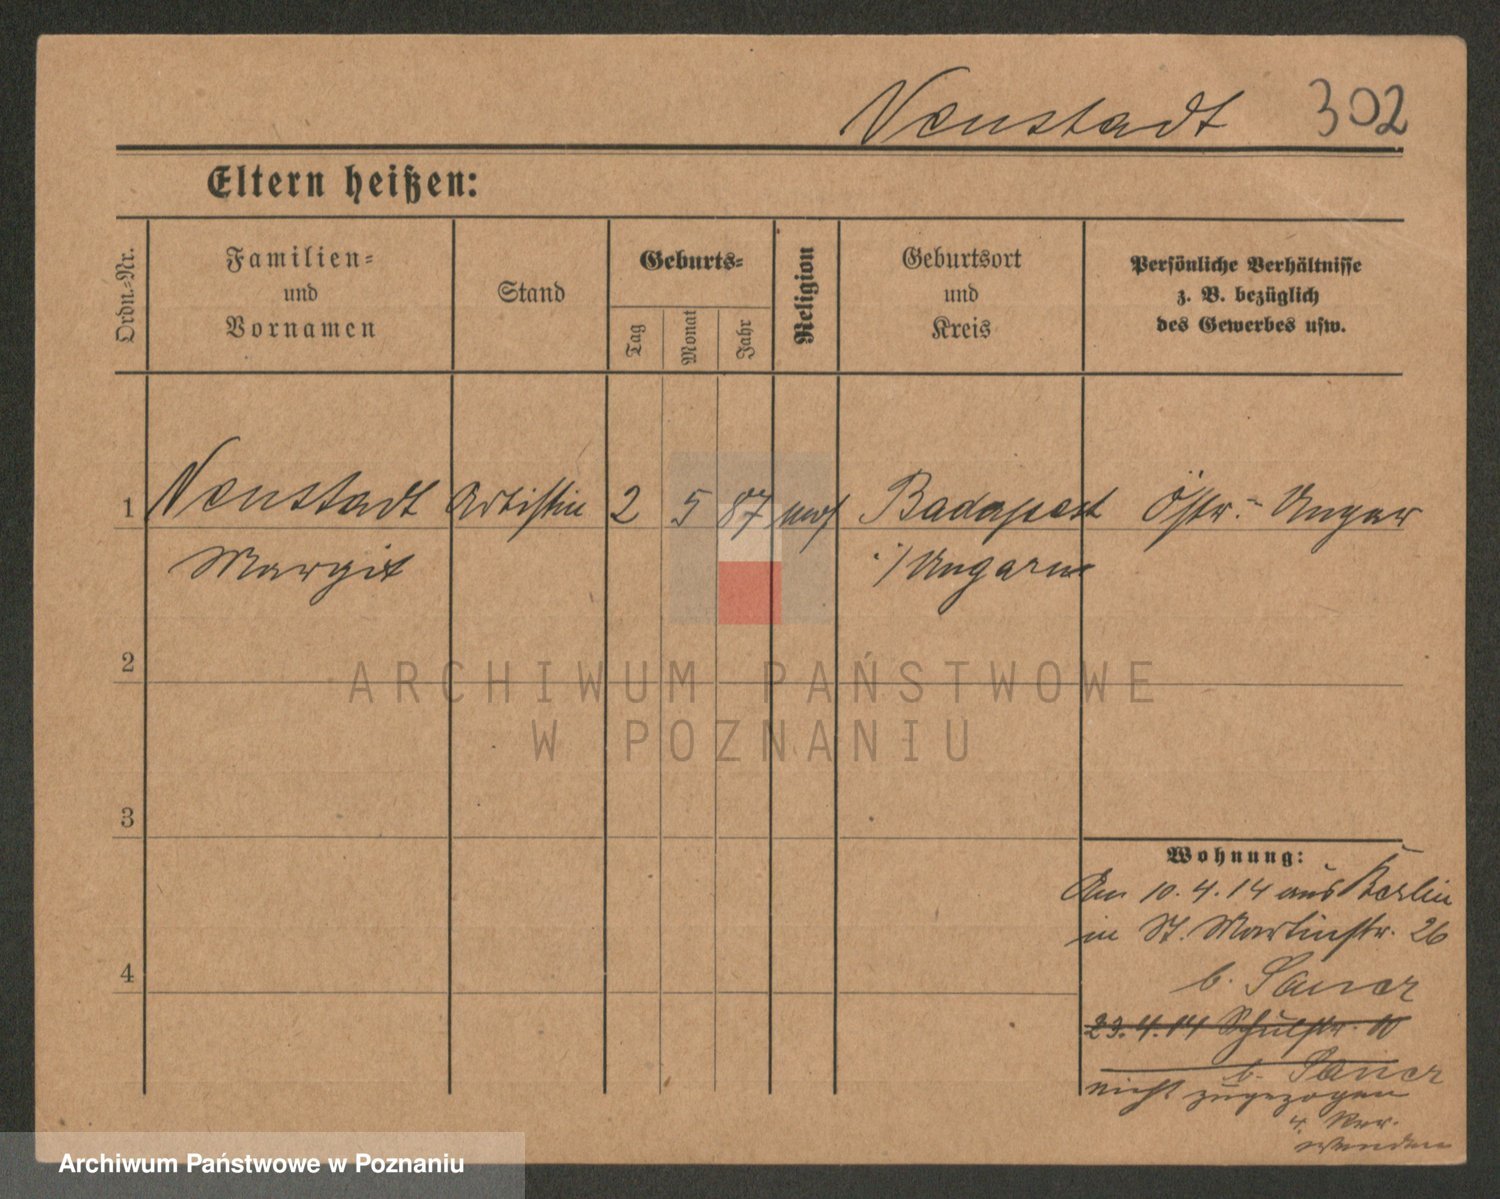 Neustadt 302
Eltern heißen:
Ordn.-Nr.
Familien-
und
Vornamen
Stand
Geburts-
Tag
Monat
Jahr
Religion
Geburtsort
und
Kreis
Persönliche Verhältnisse
z. B. bezüglich
des Gewerbes usw.
1 Neustadt Artistin 2 5 87 Budapest Östr.- Ungar
Margit i/Ungarn
2
ARCHIWUM PAŃSTWOWE
W POZNANIU
3
Wohnung:
Am 10.4.14 aus Berlin
in St. Martinstr. 26
b. Sauer
4
23.4.14 Schulstr. 10
b. Sauer
nicht zugezogen
Archiwum Państwowe w Poznaniu